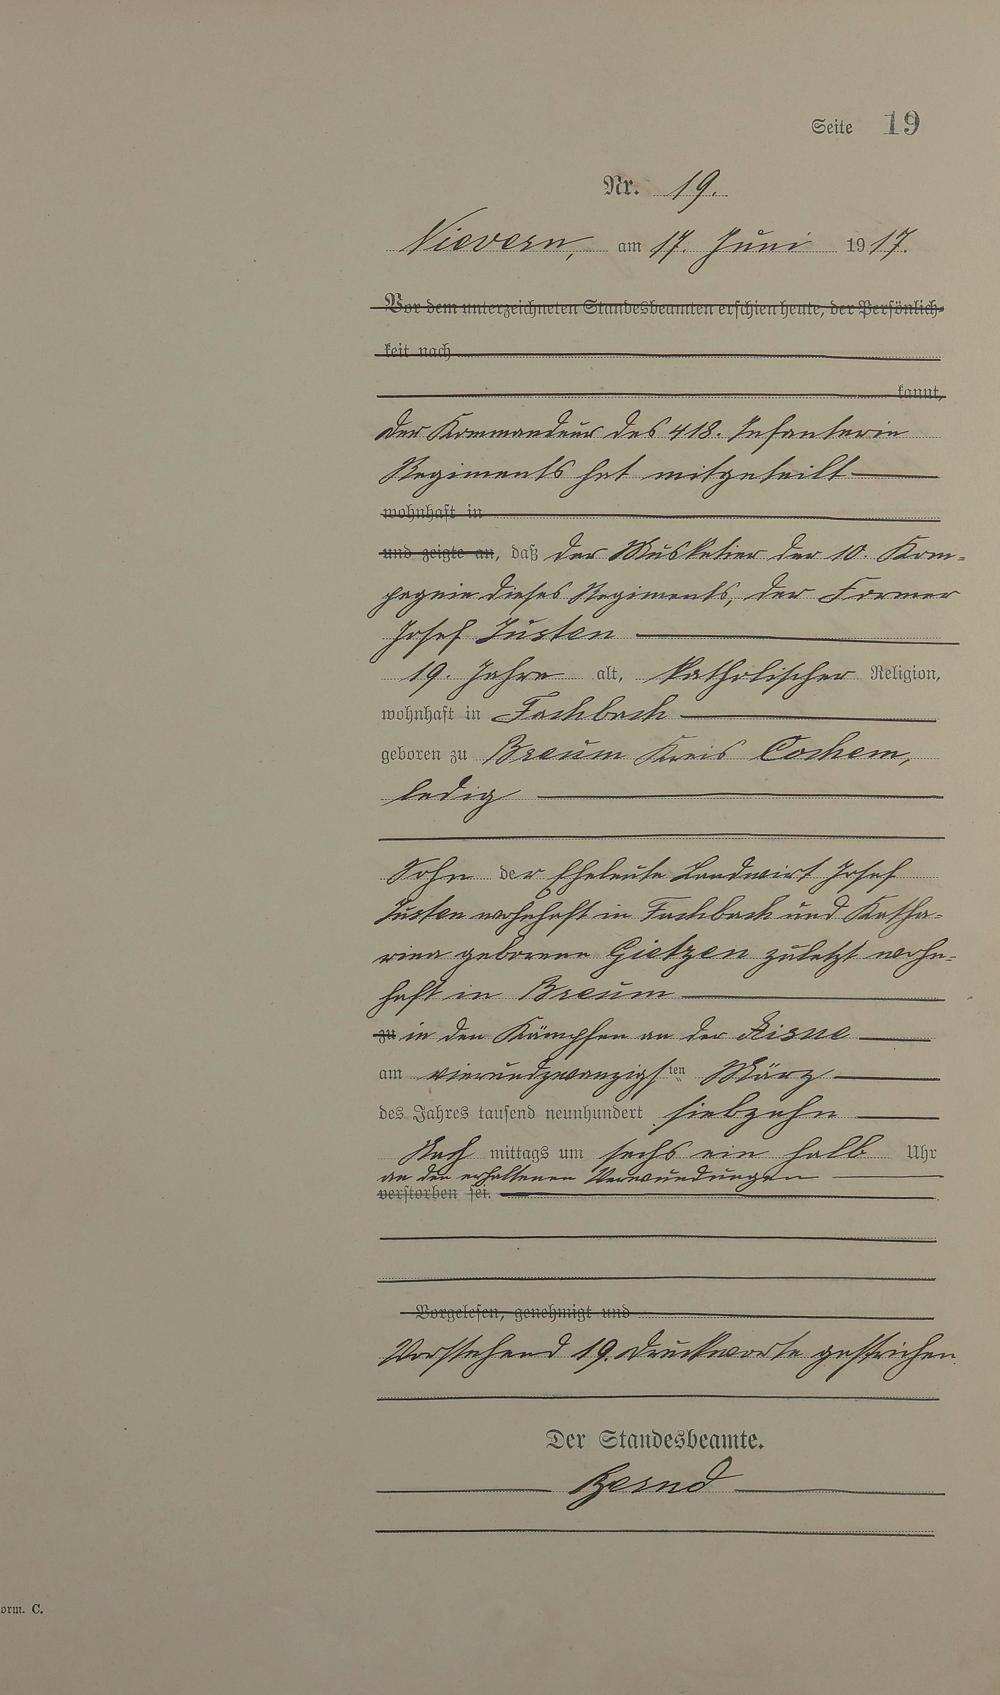 Seite 19
Nr. 19.
Nievern, am 17. Juni 1917.
Vor dem unterzeichneten Standesbeamten erschien heute, der Persönlich-
keit nach
kannt,
Der Kommandeur des 418. Infanterie
Regiments hat mitgeteilt
wohnhaft in
und zeigte an, daß der Musketier der 10. Kom-
pagnie dieses Regiments, der Former
Josef Justen
19. Jahre alt, katholischer Religion,
wohnhaft in Fachbach
geboren zu Breum Kreis Cochem,
ledig
Sohn der Eheleute Landwirt Josef
Justen wohnhaft in Fachbach und Katha-
rina geborene Gietzen zuletzt wohn-
haft in Breum
zu in den Kämpfen an der Aisne
am vierundzwanzigsten März
des Jahres tausend neunhundert siebzehn
Nach mittags um sechs ein halb Uhr
an den erhaltenen Verwundungen
verstorben sei.
Vorgelesen, genehmigt und
Vorstehend 19. Druckworte gestrichen
Der Standesbeamte.
Bernd
orm. C.